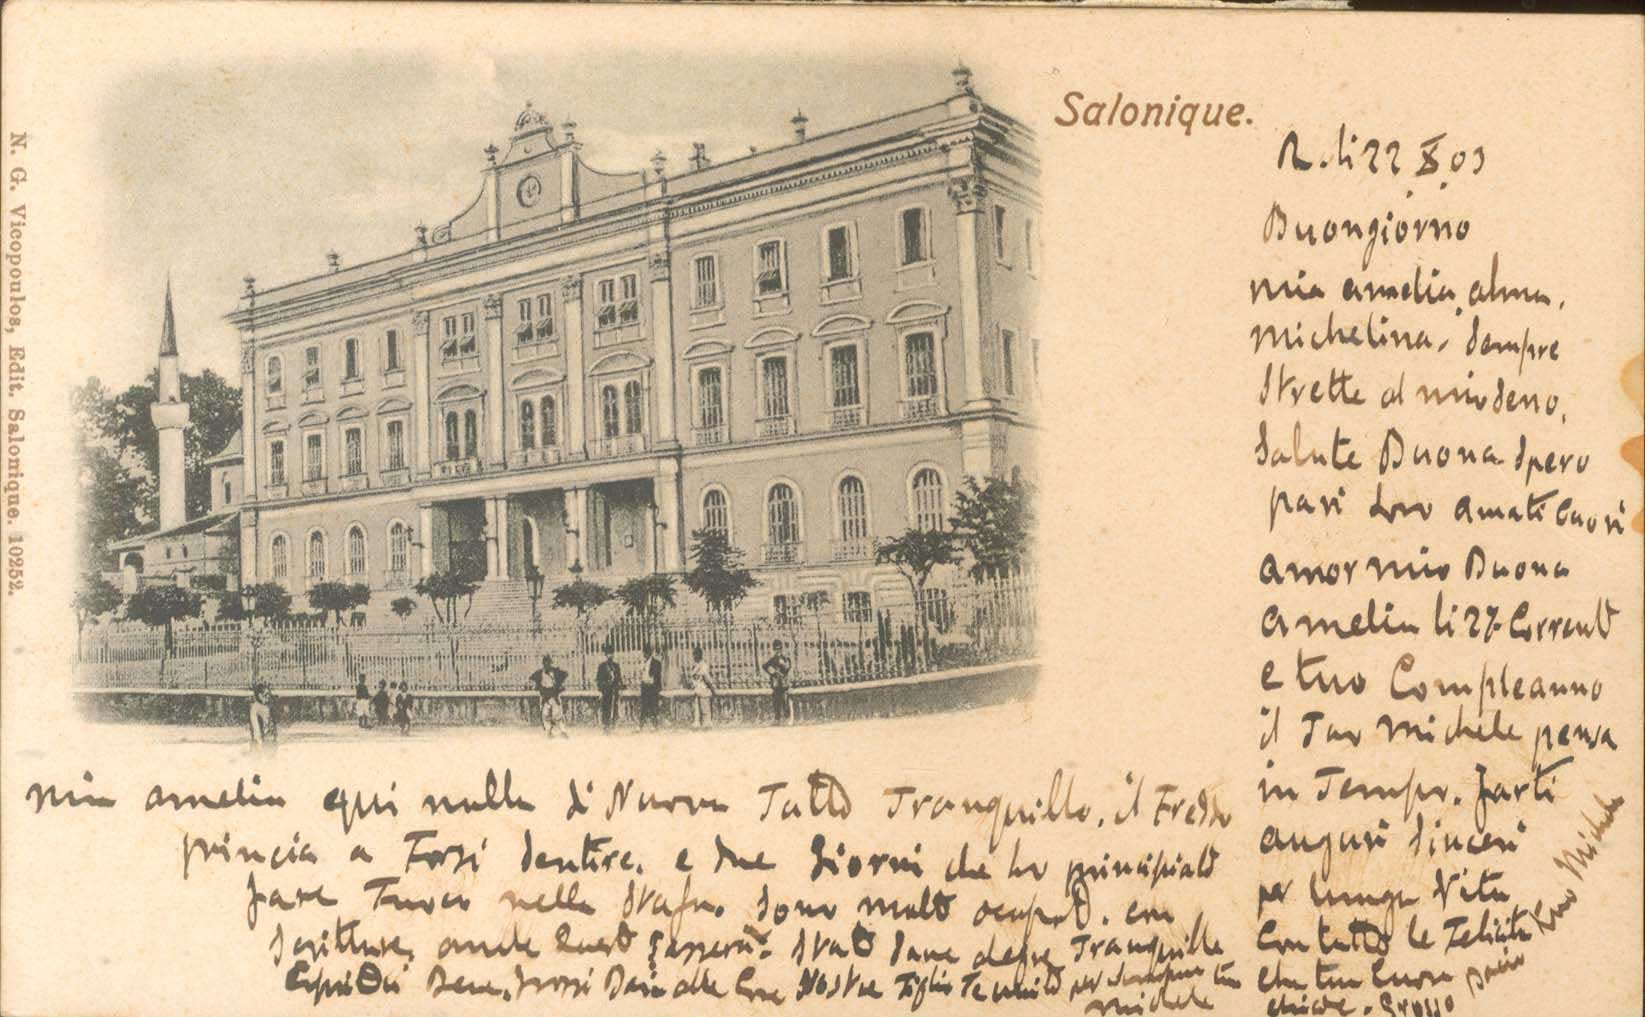 Salonique.
N. G. Vicopoulos, Edit. Salonique. 10252.
li 22 X 03
Buongiorno
mia amelia alma.
michelina. Sempre
Strette al mio Seno.
Salute Buona Spero
pari loro amati Cuori
amor mio Buona
amelia li 27 Corrent
e tuo Compleanno
il Tuo Michele pensa
in Tempo. farti
auguri Sinceri
per lunga Vita
Con tutto le Felicita
che tuo Cuore
chiede. Grosso Bacio
tuo Michele
mia amelia qui nulla di Nuovo Tutto Tranquillo. il Freddo
princia a Farsi Sentire. e due Giorni che ho principiato
fare Fuoco nella Stufa. Sono molto ocupato. con
Scritture, anche questo passera. Tranquilla
Bene. Grossi Baci alle Care Nostre Figlie Te unito per Sempre tuo
Michele